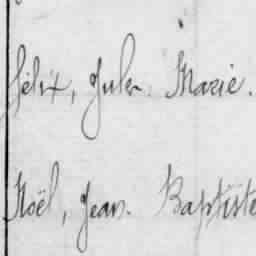 Félix, Jules. Marie.
Noël, Jean. Baptiste